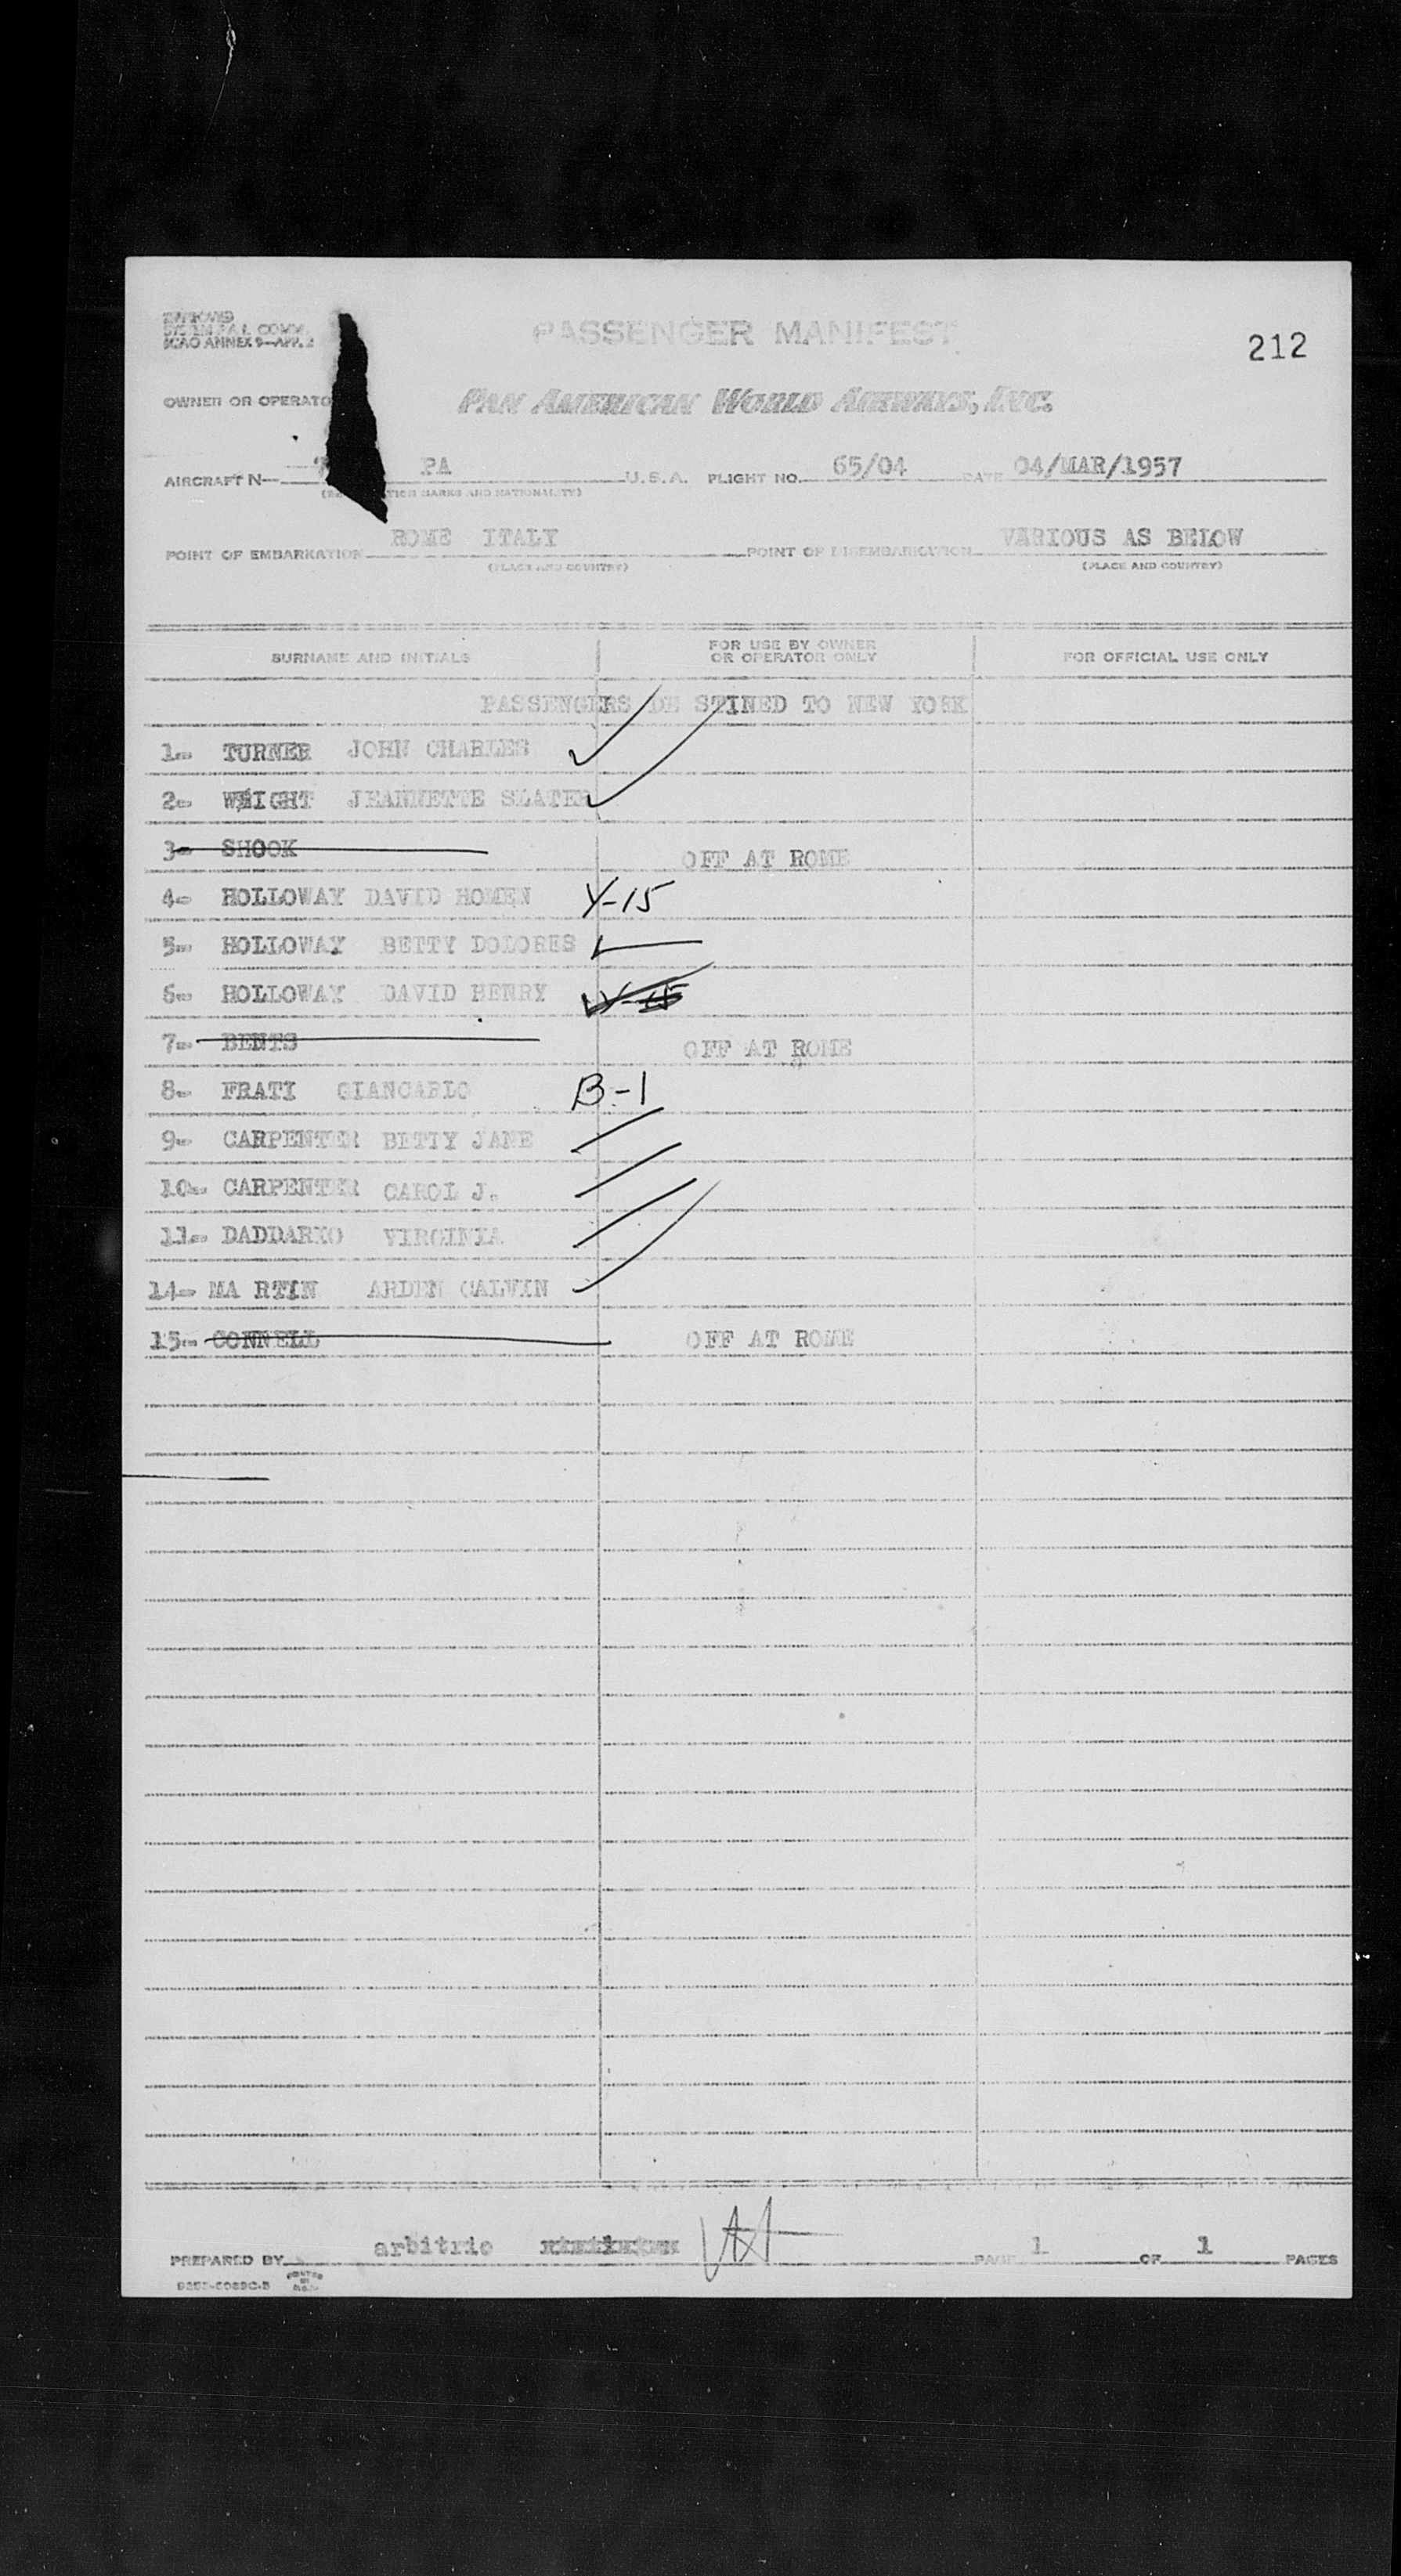 ICAO ANNEX 9—APP. 2
PASSENGER MANIFEST
212
OWNER OR OPERATO
PAN AMERICAN WORLD AIRWAYS, INC.
AIRCRAFT N— 7 PA U.S.A. FLIGHT NO. 65/04 DATE 04/MAR/1957
TION MARKS AND NATIONALITY)
POINT OF EMBARKATION ROME ITALY POINT OF DISEMBARKATION VARIOUS AS BELOW
(PLACE AND COUNTRY) (PLACE AND COUNTRY)
SURNAME AND INITIALS FOR USE BY OWNER OR OPERATOR ONLY FOR OFFICIAL USE ONLY
PASSENGERS DE STINED TO NEW YORK
1- TURNER JOHN CHARLES
2- WEIGHT JEANNETTE SLATER
3- SHOOK OFF AT ROME
4- HOLLOWAY DAVID HOMEN Y-15
5- HOLLOWAY BETTY DOLORES
6- HOLLOWAY DAVID HENRY Y-15
7- BENTS OFF AT ROME
8- FRATI GIANCARLO B-1
9- CARPENTER BETTY JANE
10- CARPENTER CAROL J.
11- DADDARIO VIRGINIA
14- MA RTIN ARDEN CALVIN
15- CONNELL OFF AT ROME
PREPARED BY arbitrio PAGE 1 OF 1 PAGES